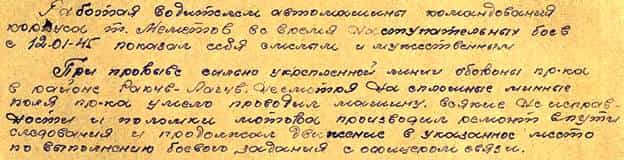 Работая водителем автомашины командования
корпуса т. Меметов во время наступательных боев
с 12.01-45 показал себя смелым и мужественным
При прорыве сильно укрепленной линии обороны пр-ка
в районе Ракув-Лагув, несмотря на сплошные минные
поля пр-ка умело проводил машину. всякие неисправ-
ности и поломки мотора производил ремонт в пути
следования и продолжал движение в указанное место
по выполнению боевого задания с офицером связи.